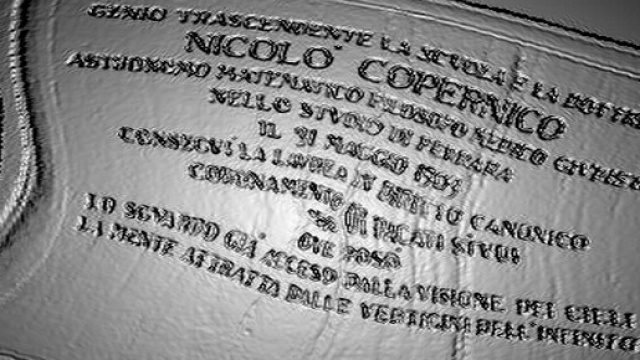 GENIO TRASCENDENTE LA SCUOLA E LA DOTTR
NICOLO' COPERNICO
ASTRONOMO MATEMATICO FILOSOFO MEDICO GIURIST
NELLO STUDIO DI FERRARA
IL 31 MAGGIO 1503
CONSEGUI' LA LAUREA IN DIRITTO CANONICO
CORONAMENTO
DI STUDI
OVE POSO
LO SGUARDO GIA' ACCESO DALLA VISIONE DEI CIELI
LA MENTE ATTRATTA DALLE VERTIGINI DELL'INFINITO